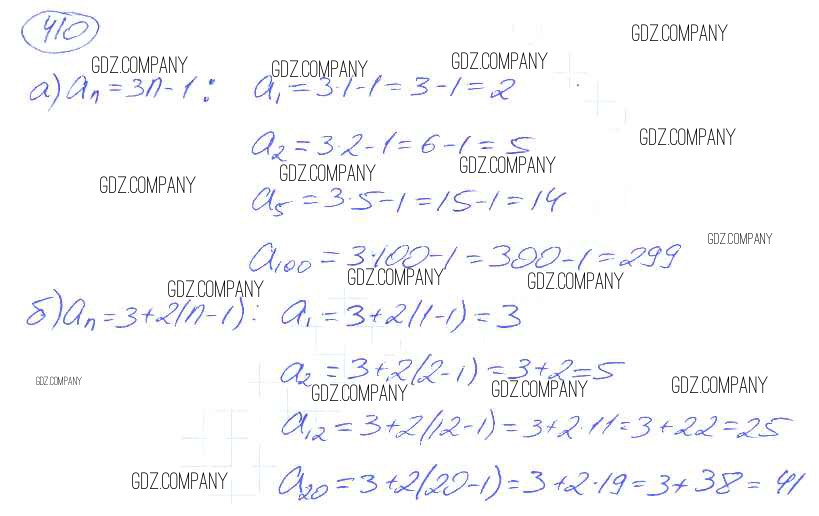 410
GDZ.COMPANY
GDZ.COMPANY GDZ.COMPANY GDZ.COMPANY
а) aₙ = 3n - 1: a₁ = 3·1 - 1 = 3 - 1 = 2
a₂ = 3·2 - 1 = 6 - 1 = 5
GDZ.COMPANY
GDZ.COMPANY GDZ.COMPANY GDZ.COMPANY
a₅ = 3·5 - 1 = 15 - 1 = 14
GDZ.COMPANY
a₁₀₀ = 3·100 - 1 = 300 - 1 = 299
GDZ.COMPANY GDZ.COMPANY GDZ.COMPANY
б) aₙ = 3 + 2(n - 1): a₁ = 3 + 2(1 - 1) = 3
a₂ = 3 + 2(2 - 1) = 3 + 2 = 5
GDZ.COMPANY GDZ.COMPANY GDZ.COMPANY GDZ.COMPANY
a₁₂ = 3 + 2(12 - 1) = 3 + 2·11 = 3 + 22 = 25
GDZ.COMPANY
a₂₀ = 3 + 2(20 - 1) = 3 + 2·19 = 3 + 38 = 41